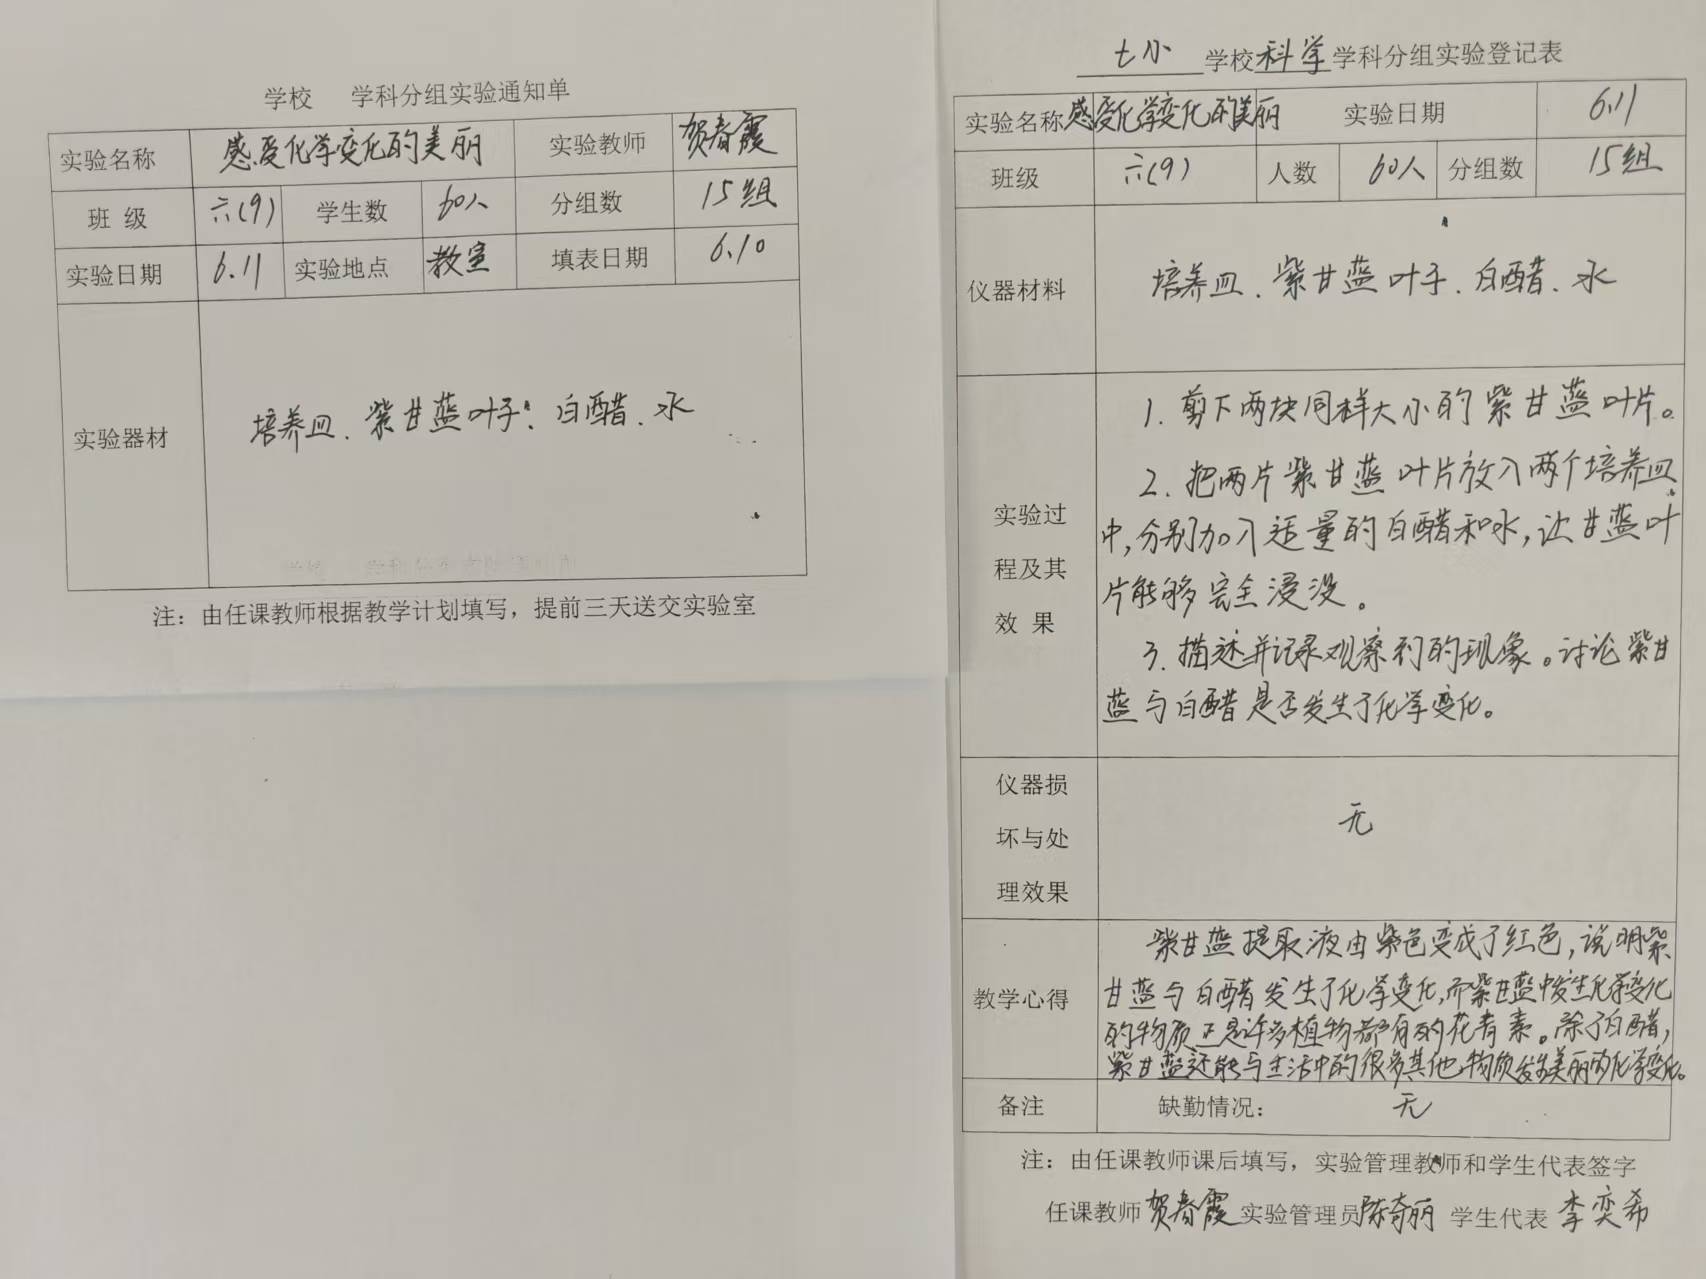 学校 学科分组实验通知单
实验名称 感受化学变化的美丽 实验教师 贺春霞
班 级 六(9) 学生数 60人 分组数 15组
实验日期 6.11 实验地点 教室 填表日期 6.10
实验器材 培养皿、紫甘蓝叶子、白醋、水
注：由任课教师根据教学计划填写，提前三天送交实验室
七小 学校 科学 学科分组实验登记表
实验名称 感受化学变化的美丽 实验日期 6.11
班级 六(9) 人数 60人 分组数 15组
仪器材料 培养皿、紫甘蓝叶子、白醋、水
实验过
程及其
效 果
1. 剪下两块同样大小的紫甘蓝叶片。
2. 把两片紫甘蓝叶片放入两个培养皿
中，分别加入适量的白醋和水，让甘蓝叶
片能够完全浸没。
3. 描述并记录观察到的现象。讨论紫甘
蓝与白醋是否发生了化学变化。
仪器损
坏与处
理效果
无
教学心得
紫甘蓝提取液由紫色变成了红色，说明紫
甘蓝与白醋发生了化学变化，而紫甘蓝中发生化学变化
的物质正是许多植物都有的花青素。除了白醋，
紫甘蓝还能与生活中的很多其他物质发生美丽的化学变化。
备注 缺勤情况： 无
注：由任课教师课后填写，实验管理教师和学生代表签字
任课教师 贺春霞 实验管理员 陈奇丽 学生代表 李奕希